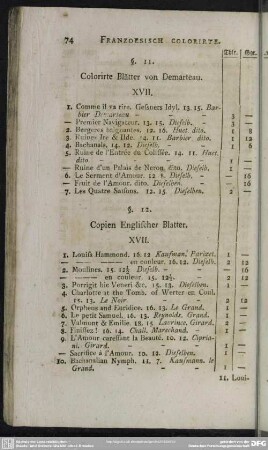 74 FRANZOEBISCH COLORIRTE.
Thlr. Gar.
§. 11.
Colorirte Blätter von Demarteau.
XVII.
1. Comme il va rire. Gesners Idyl. 13. 15. Bar-
bier Demarteau - - 3 —
— Premier Navigateur. 13. 15. Dieselb. - 3 —
2. Bergeres 12. 16. Huet. dito. 1 8
3. Ruines Ire & IIde. 14. 11. Barbier dito. 1 12
4. Bachanals. 14. 12. Dieselb. - 2 —
5. Ruine de l'Entrée du Collisée. 14. 11. Huet.
dito - - - 1 —
— Ruine d'un Palais de Neron, dito. Dieselb. 1 —
6. Le Serment d'Amour. 12 Dieselb. - — 16
— Fruit de l'Amour. dito. Dieselben. - — 16
7. Les Quatre Saisons. 12. 15. Dieselben. 2 —
§. 12.
Copien Englischer Blätter.
XVII.
1. Louisa Hammond. 16. 12 Kaufman. Parizet. 1 —
— — — en couleur. 16. 12. Dieselb. 2 12
2. Moulines. 15. 12½. Dieselb. - - — 16
— — en couleur. 15. 12½. - 2 12
3. Porrigit hic Veneri &c. 15. 13. Dieselben. 1 —
4. Charlotte at the Tomb. of Werter en Coul.
15. 13. Le Noir - - 2 12
5. Orpheus and Euridice. 16. 13. Le Grand. 1 —
6. Le petit Samuel. 16. 13. Reynolds. Grand. 1 —
7. Valmont & Emilie. 18. 15 Lavrince. Girard. 2 —
8. 16. 14. Chall. Marchand. - 1 —
9. L'Amour caressant la Beauté. 10. 12. Cipria-
ni. Girard. - - 1 —
— Sacrifice à l'Amour. 10. 12. Dieselben. 1 —
10. Bachanalian Nymph. 11. 7. Kaufmann. le
Grand. - - - 1 —
11. Loui-